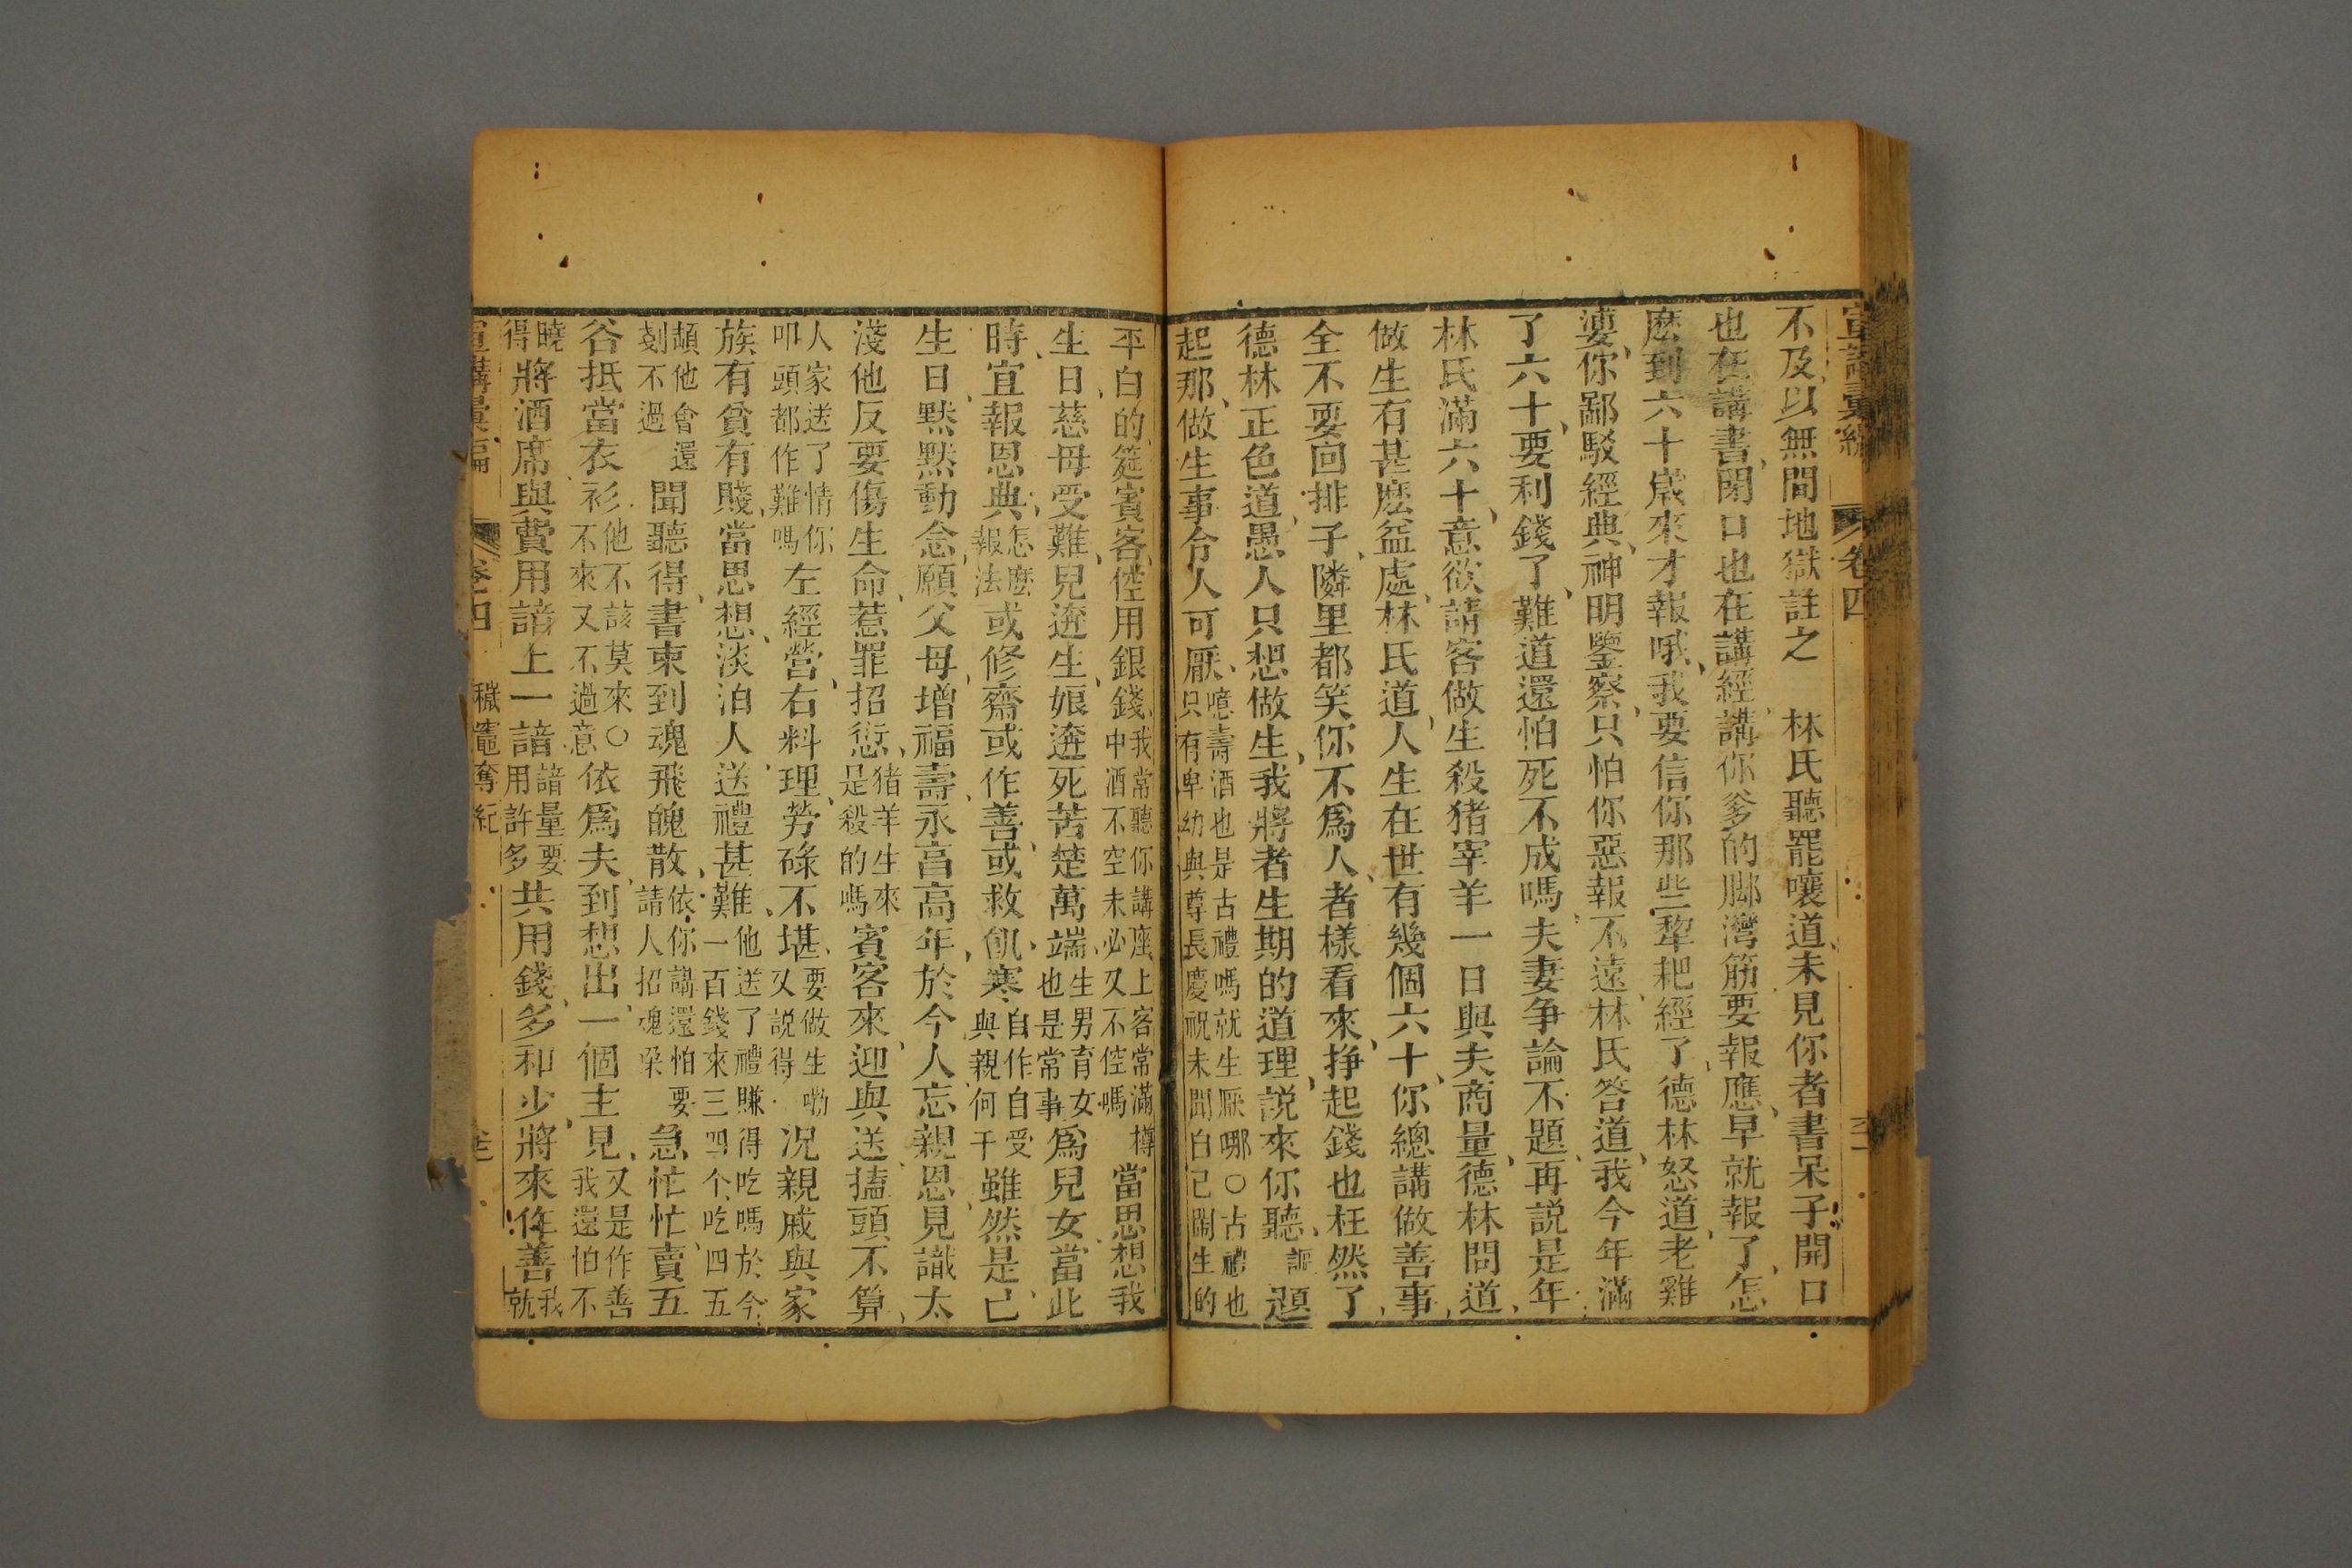 宣講彙編 卷四
不及以無間地獄註之 林氏聽罷嚷道未見你者書呆子開口
也在講書閉口也在講經講你爹的腳灣筋要報應早就報了怎
麽到六十歲來才報哦我要信你那些犂耙經了德林怒道老雞
婆你鄙駁經典神明鑒察只怕你惡報不遠林氏答道我今年滿
了六十要利錢了難道還怕死不成嗎夫妻爭論不題再説是年
林氏滿六十意欲請客做生殺猪宰羊一日與夫商量德林問道
做生有甚麽益處林氏道人生在世有幾個六十你總講做善事
全不要回排子隣里都笑你不爲人者樣看來掙起錢也枉然了
德林正色道愚人只想做生我將者生期的道理説來你聽謳題
起那做生事令人可厭噫壽酒也是古禮嗎就生厭哪〇古禮也只有卑幼與尊長慶祝未聞自己鬧生的
平白的筵賓客倥用銀錢我常聽你講座上客常滿樽中酒不空未必又不倥嗎當思想我
生日慈母受難兒逩生娘逩死苦楚萬端生男育女也是常事爲兒女當此
時宜報恩典怎麽報法或修齋或作善或救飢寒自作自受與親何干雖然是己
生日黙黙動念願父母增福壽永亯高年於今人忘親恩見識太
淺他反要傷生命惹罪招愆猪羊生來是殺的嗎賓客來迎與送搕頭不算
人家送了情你叩頭都作難嗎左經營右料理勞碌不堪要做生嘞又説得况親戚與家
族有貧有賤當思想淡泊人送禮甚難他送了禮賺得吃嗎於今一百錢來三四个吃四五
顛他會還剗不過聞聽得書柬到魂飛魄散依你講還怕要請人招魂喿急忙忙賣五
谷抵當衣衫他不該莫來〇不來又不過意依爲夫到想出一個主見又是作善我還怕不
曉得將酒席與費用諳上一諳諳量要用許多共用錢多和少將來作善我就
宣講彙編 卷四 穢竈奪紀